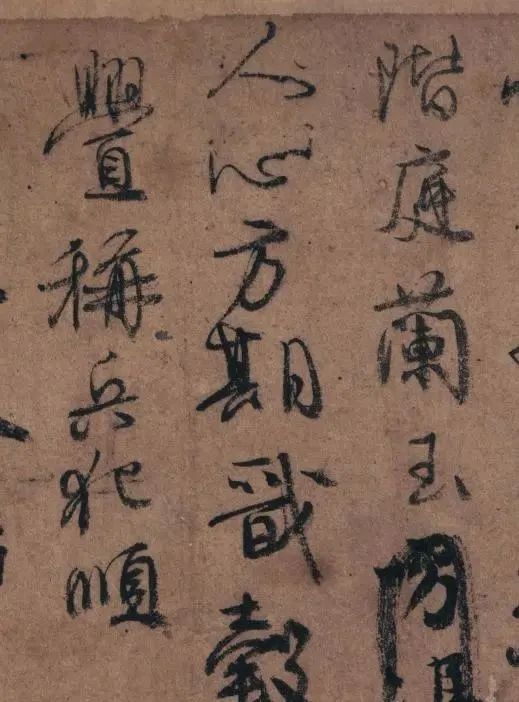 階庭蘭玉
人心方期戩穀
釁稱兵犯順